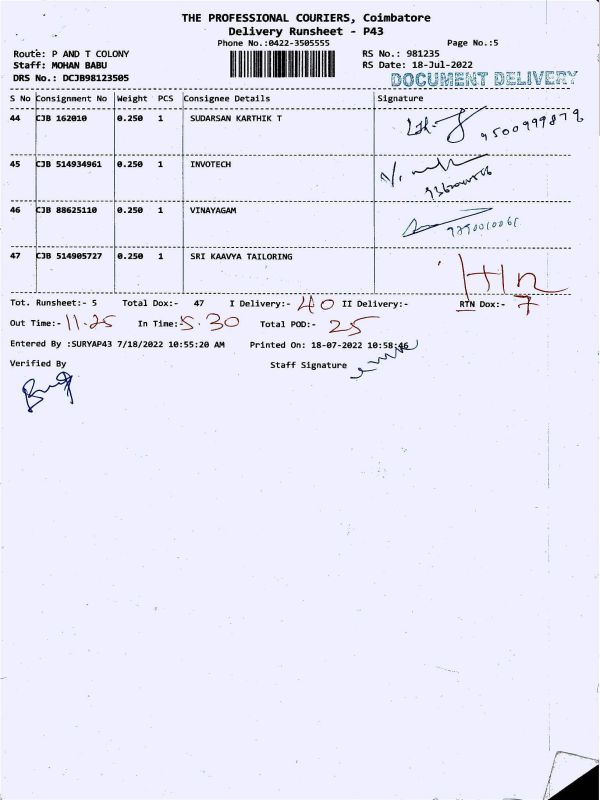 THE PROFESSIONAL COURIERS, Coimbatore
Delivery Runsheet - P43
Phone No.:0422-3505555 Page No.:5
Route: P AND T COLONY RS No.: 981235
Staff: MOHAN BABU RS Date: 18-Jul-2022
DRS No.: DCJB98123505 DOCUMENT DELIVERY
S No Consignment No Weight PCS Consignee Details Signature
44 CJB 162010 0.250 1 SUDARSAN KARTHIK T
45 CJB 514934961 0.250 1 INVOTECH
46 CJB 88625110 0.250 1 VINAYAGAM
47 CJB 514905727 0.250 1 SRI KAAVYA TAILORING
Tot. Runsheet:- 5 Total Dox:- 47 I Delivery:- 40 II Delivery:- RTN Dox:- 7
Out Time:- 11.25 In Time:- 5.30 Total POD:- 25
Entered By :SURYAP43 7/18/2022 10:55:20 AM Printed On: 18-07-2022 10:58:46
Verified By Staff Signature